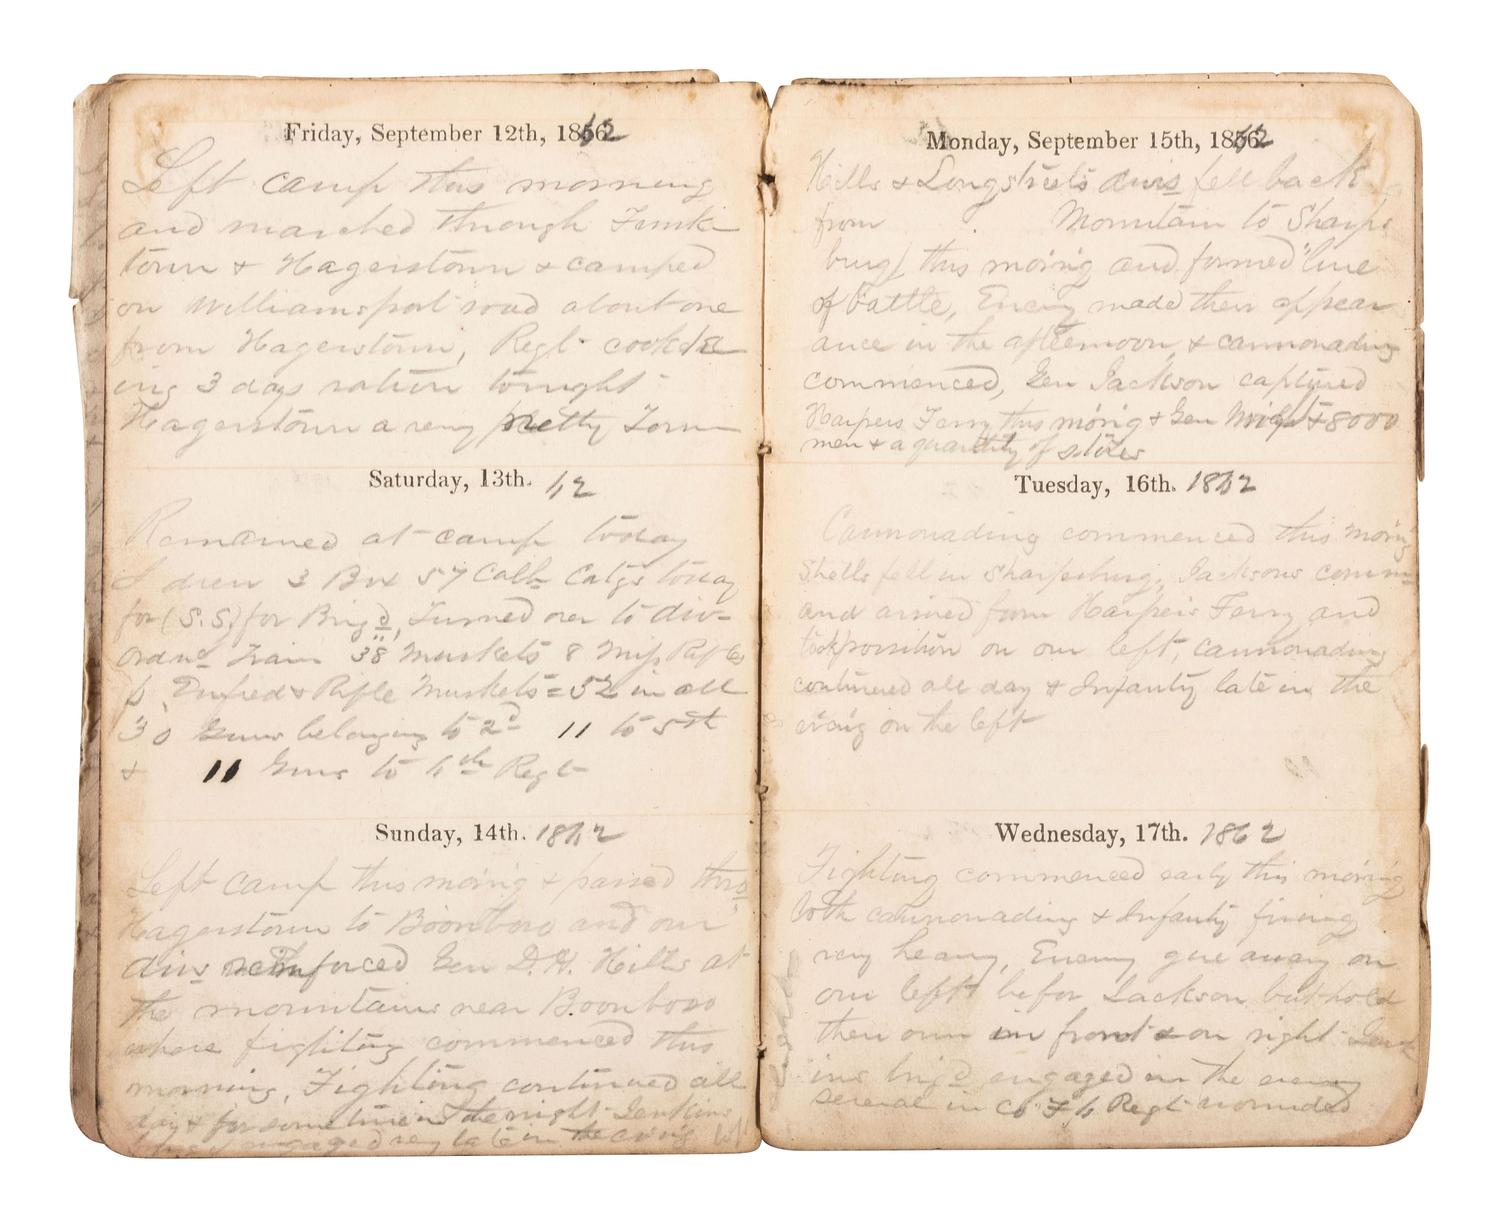 Friday, September 12th, 1862
Left camp this morning
and marched through Funks
town & Hagerstown & camped
on Williamsport road about one
from Hagerstown, Regt. cook
ing 3 days ration tonight
Hagerstown a very pretty Town
Saturday, 13th. 62
Remained at camp today
I drew 3 Box 57 Calb Catgs today
for (S.S.) for Brigd, Turned over to div
Ordnc Train 38 Muskets 8 Miss Rifles
6 Enfield & Rifle Muskets = 52 in all
30 Guns belonging to 2d 11 to 5th
& 11 Guns to 6th Regt
Sunday, 14th. 1862
Left camp this moring & passed thro
Hagerstown to Boonboro and our
divs reinforced Gen D. H. Hills at
the mountains near Boonboro
where fighting commenced this
morning, Fighting continued all
day & for some time in the night. Jenkins
brigd engaged very late in the evnig
Monday, September 15th, 1862
Hills & Longstreets divs fell back
from Mountain to Sharps
burg this moring and formed line
of battle, Enemy made their appear
ance in the afternoon, & cannonading
commenced, Gen Jackson captured
Harpers Ferry this moring & Gen & 8000
men & a quantity of stores
Tuesday, 16th. 1862
Cannonading commenced this moring
Shells fell in Sharpsburg, Jacksons comm
and arrived from Harpers Ferry and
took position on our left, cannonading
continued all day & Infantry late in the
evnig on the left
Wednesday, 17th. 1862
Fighting commenced early this moring
both cannonading & Infanty firing
very heavy, Enemy gave away on
our left befor Jackson but hold
their own in front & on right Jenk
ins brigd engaged in the evnig
several in Co F 6 Regt wounded